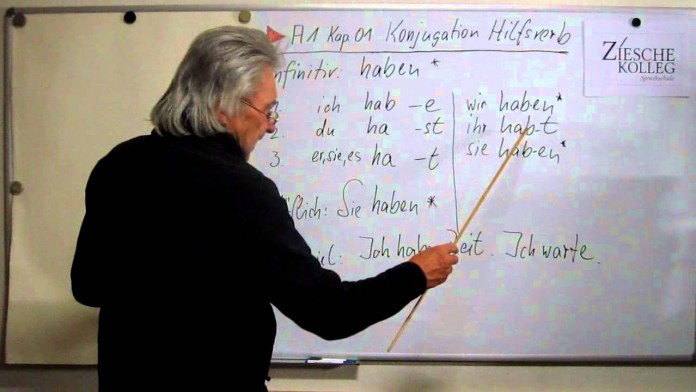 A1 Kap 01 Konjugation Hilfsverb
ZIESCHE KOLLEG
Sprachschule
nfinitiv: haben*
ich hab -e
wir haben*
2. du ha -st
ihr hab-t
3. er, sie, es ha -t
sie hab-en*
flich: Sie haben*
iel: Ich hab Zeit. Ich warte.